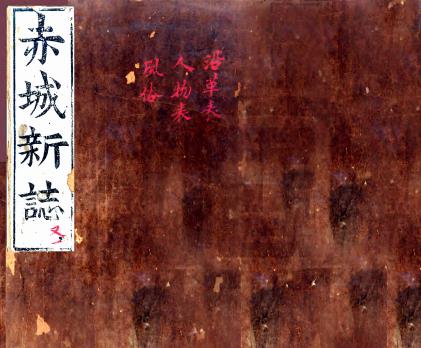 赤城新誌
沿革表
人物表
風俗